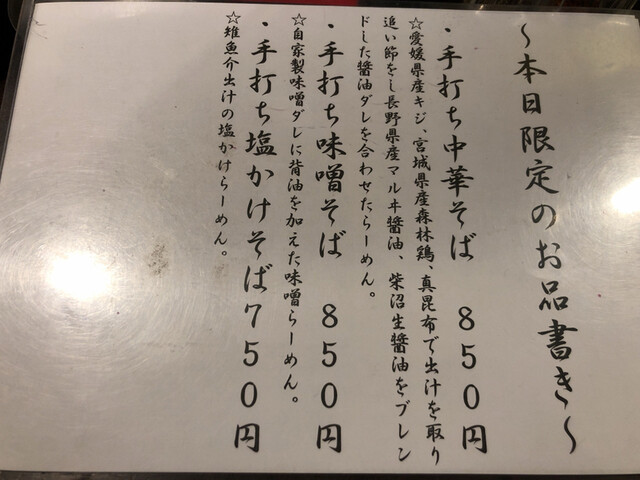 〜本日限定のお品書き〜
・手打ち中華そば　８５０円
☆愛媛県産キジ、宮城県産森林鶏、真昆布で出汁を取り
追い節をし長野県産マルヰ醤油、柴沼生醤油をブレン
ドした醤油ダレを合わせたらーめん。
・手打ち味噌そば　８５０円
☆自家製味噌ダレに背油を加えた味噌らーめん。
・手打ち塩かけそば７５０円
☆雉魚介出汁の塩かけらーめん。